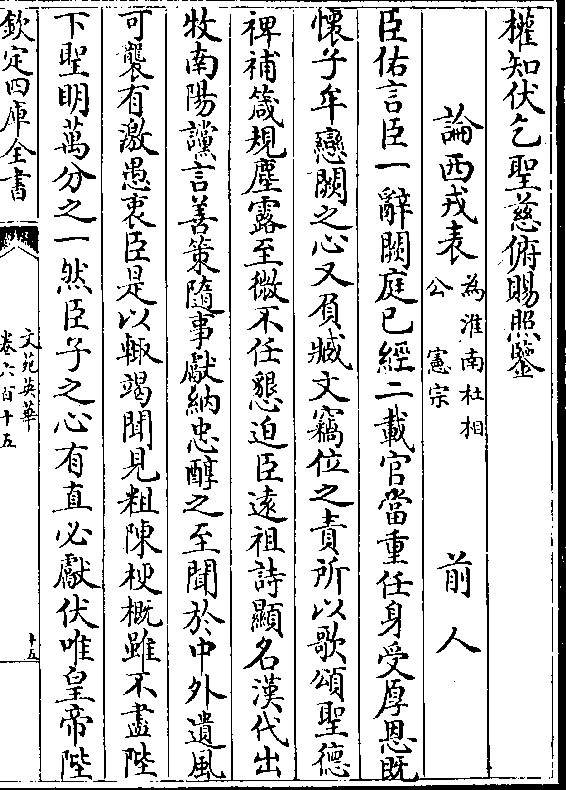 權知伏乞聖慈俯賜照鑒
論西戎表 為淮南杜相公 憲宗 前人
臣佑言臣一辭闕庭已經二載官當重任身受厚恩既
懷子牟戀闕之心又負臧文竊位之責所以歌頌聖德
裨補箴規塵露至微不任懇迫臣遠祖詩顯名漢代出
牧南陽讜言善策隨事獻納忠醇之至聞於中外遺風
可襲有激愚衷臣是以輙竭聞見粗陳梗概雖不盡陛
下聖明萬分之一然臣子之心有直必獻伏唯皇帝陛
欽定四庫全書
文苑英華
卷六百十五
十五